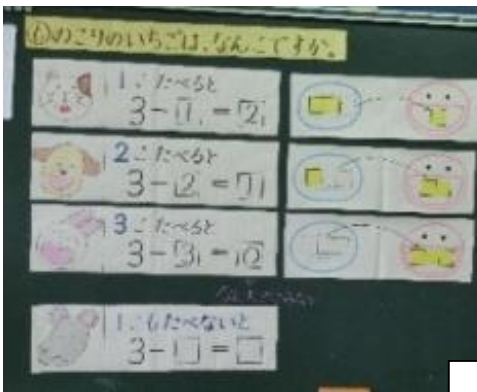 ⑥のこりのいちごは、なんこですか。
1こたべると
3-1=2
2こたべると
3-2=1
3こたべると
3-3=0
1こもたべないと
3-□=□